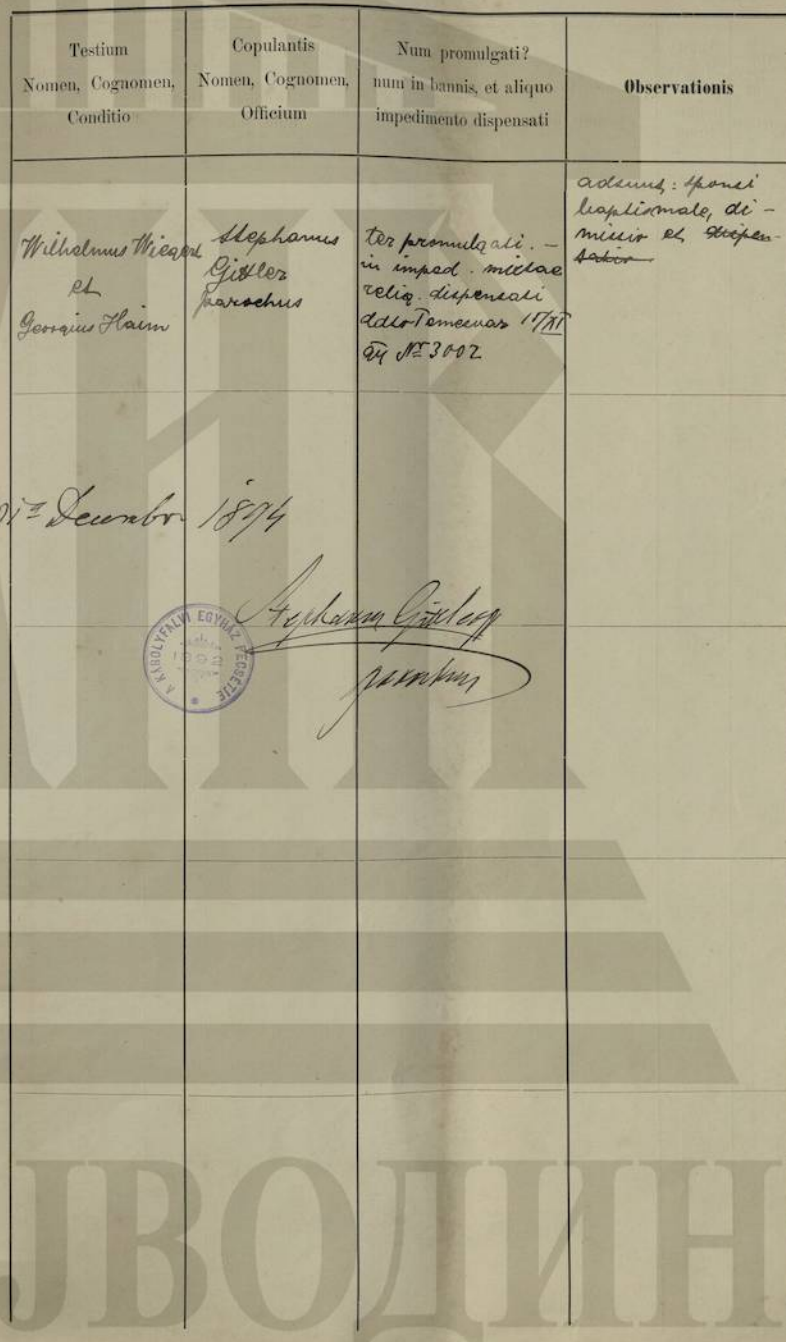 Testium
Nomen, Cognomen,
Conditio
Copulantis
Nomen, Cognomen,
Officium
Num promulgati?
num in bannis, et aliquo
impedimento dispensati
Observationis
Wilhelmus Wiegert
et
Georgius Haim
Stephanus
Gittler
parochus
ter promulgati. –
in imped. mixtae
relig. dispensati
ddto Temesvar 17/XI
No 3002
adsunt: sponsi
baptismale, di-
missio et dispen-
satio
Decembr 1894
Stephanus Gittler
parochus
A KÁROLYFALVI EGYHÁZ PECSÉTJE
1892
ЈВОДИН